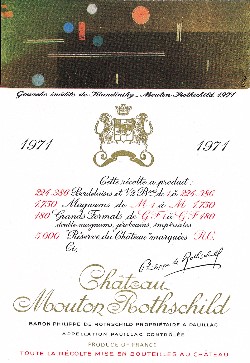 Gouache inédite de Kandinsky - Mouton-Rothschild 1971
1971 1971
Cette récolte a produit :
224.386 Bordelaises et ½ Btes de 1 à 224.386
4.750 Magnums de M 1 à M 4.750
180 Grands Formats de G F 1 à G F 180
double-magnums, jéroboams, impériales
5.000 "Réserve du Château" marquées R.C.
Ci,
Philippe de Rothschild
Château
Mouton Rothschild
BARON PHILIPPE DE ROTHSCHILD PROPRIÉTAIRE A PAUILLAC
APPELLATION PAUILLAC CONTRÔLÉE
PRODUCE OF FRANCE
TOUTE LA RÉCOLTE MISE EN BOUTEILLES AU CHÂTEAU